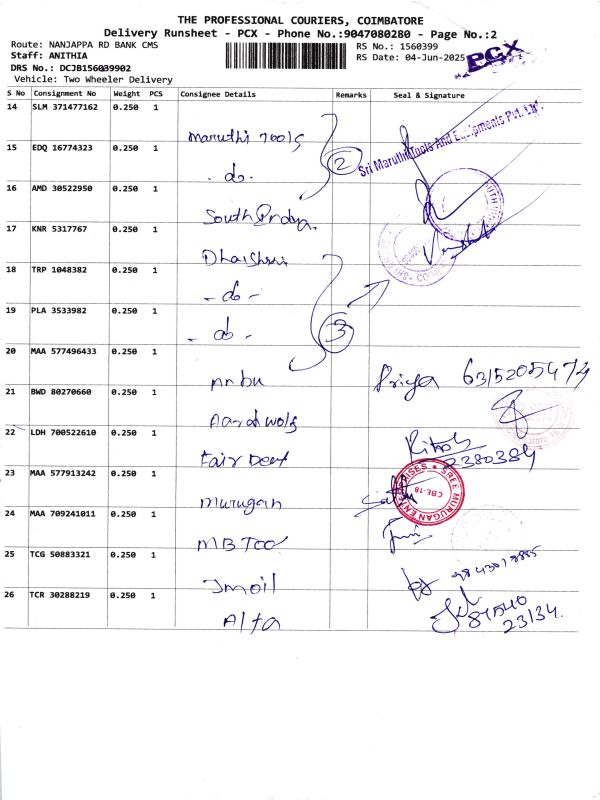 THE PROFESSIONAL COURIERS, COIMBATORE
Delivery Runsheet - PCX - Phone No.:9047080280 - Page No.:2
Route: NANJAPPA RD BANK CMS
Staff: ANITHIA
DRS No.: DCJB156039902
Vehicle: Two Wheeler Delivery
RS No.: 1560399
RS Date: 04-Jun-2025
PCX
S No Consignment No Weight PCS Consignee Details Remarks Seal & Signature
14 SLM 371477162 0.250 1
Maruthi Tools
15 EDQ 16774323 0.250 1
- do -
2
Sri Maruthi Tools And Equipments Pvt. Ltd
16 AMD 30522950 0.250 1
South India
17 KNR 5317767 0.250 1
18 TRP 1048382 0.250 1
- do -
19 PLA 3533982 0.250 1
- do -
3
20 MAA 577496433 0.250 1
Anbu
Priya 6315205474
21 BWD 80270660 0.250 1
22 LDH 700522610 0.250 1
Fair Deel
2380384
23 MAA 577913242 0.250 1
Murugan
SREE MURUGAN ENTERPRISES
CBE-18
24 MAA 709241011 0.250 1
MB Too
25 TCG 50883321 0.250 1
Jmoil
26 TCR 30288219 0.250 1
Alfa
87540
23134.